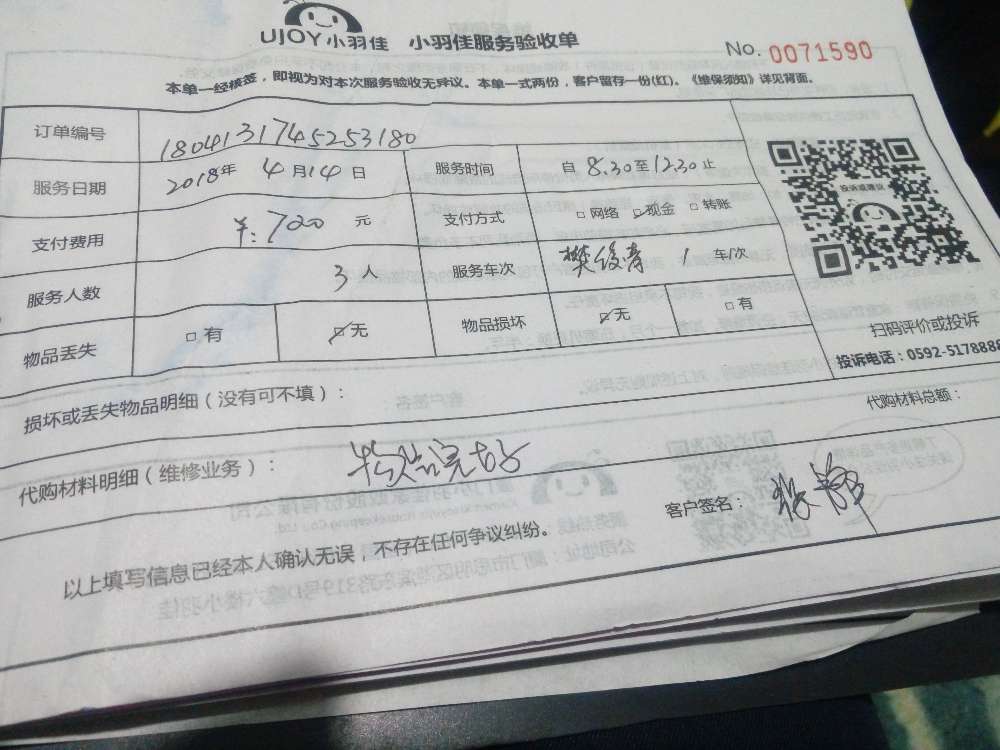 UJOY小羽佳 小羽佳服务验收单
No. 0071590
本单一经核签，即视为对本次服务验收无异议。本单一式两份，客户留存一份(红)。《维保须知》详见背面。
订单编号 1804131745253180
服务日期 2018年 4月14日 服务时间 自 8.30至12.30止
支付费用 ¥:720 元 支付方式 □网络 ☑现金 □转账
服务人数 3人 服务车次 1 车/次
物品丢失 □有 ☑无 物品损坏 ☑无 □有
投诉或建议
扫码评价或投诉
投诉电话：0592-5178888
损坏或丢失物品明细（没有可不填）：
代购材料总额：
代购材料明细（维修业务）： 物品完好
客户签名：
以上填写信息已经本人确认无误，不存在任何争议纠纷。